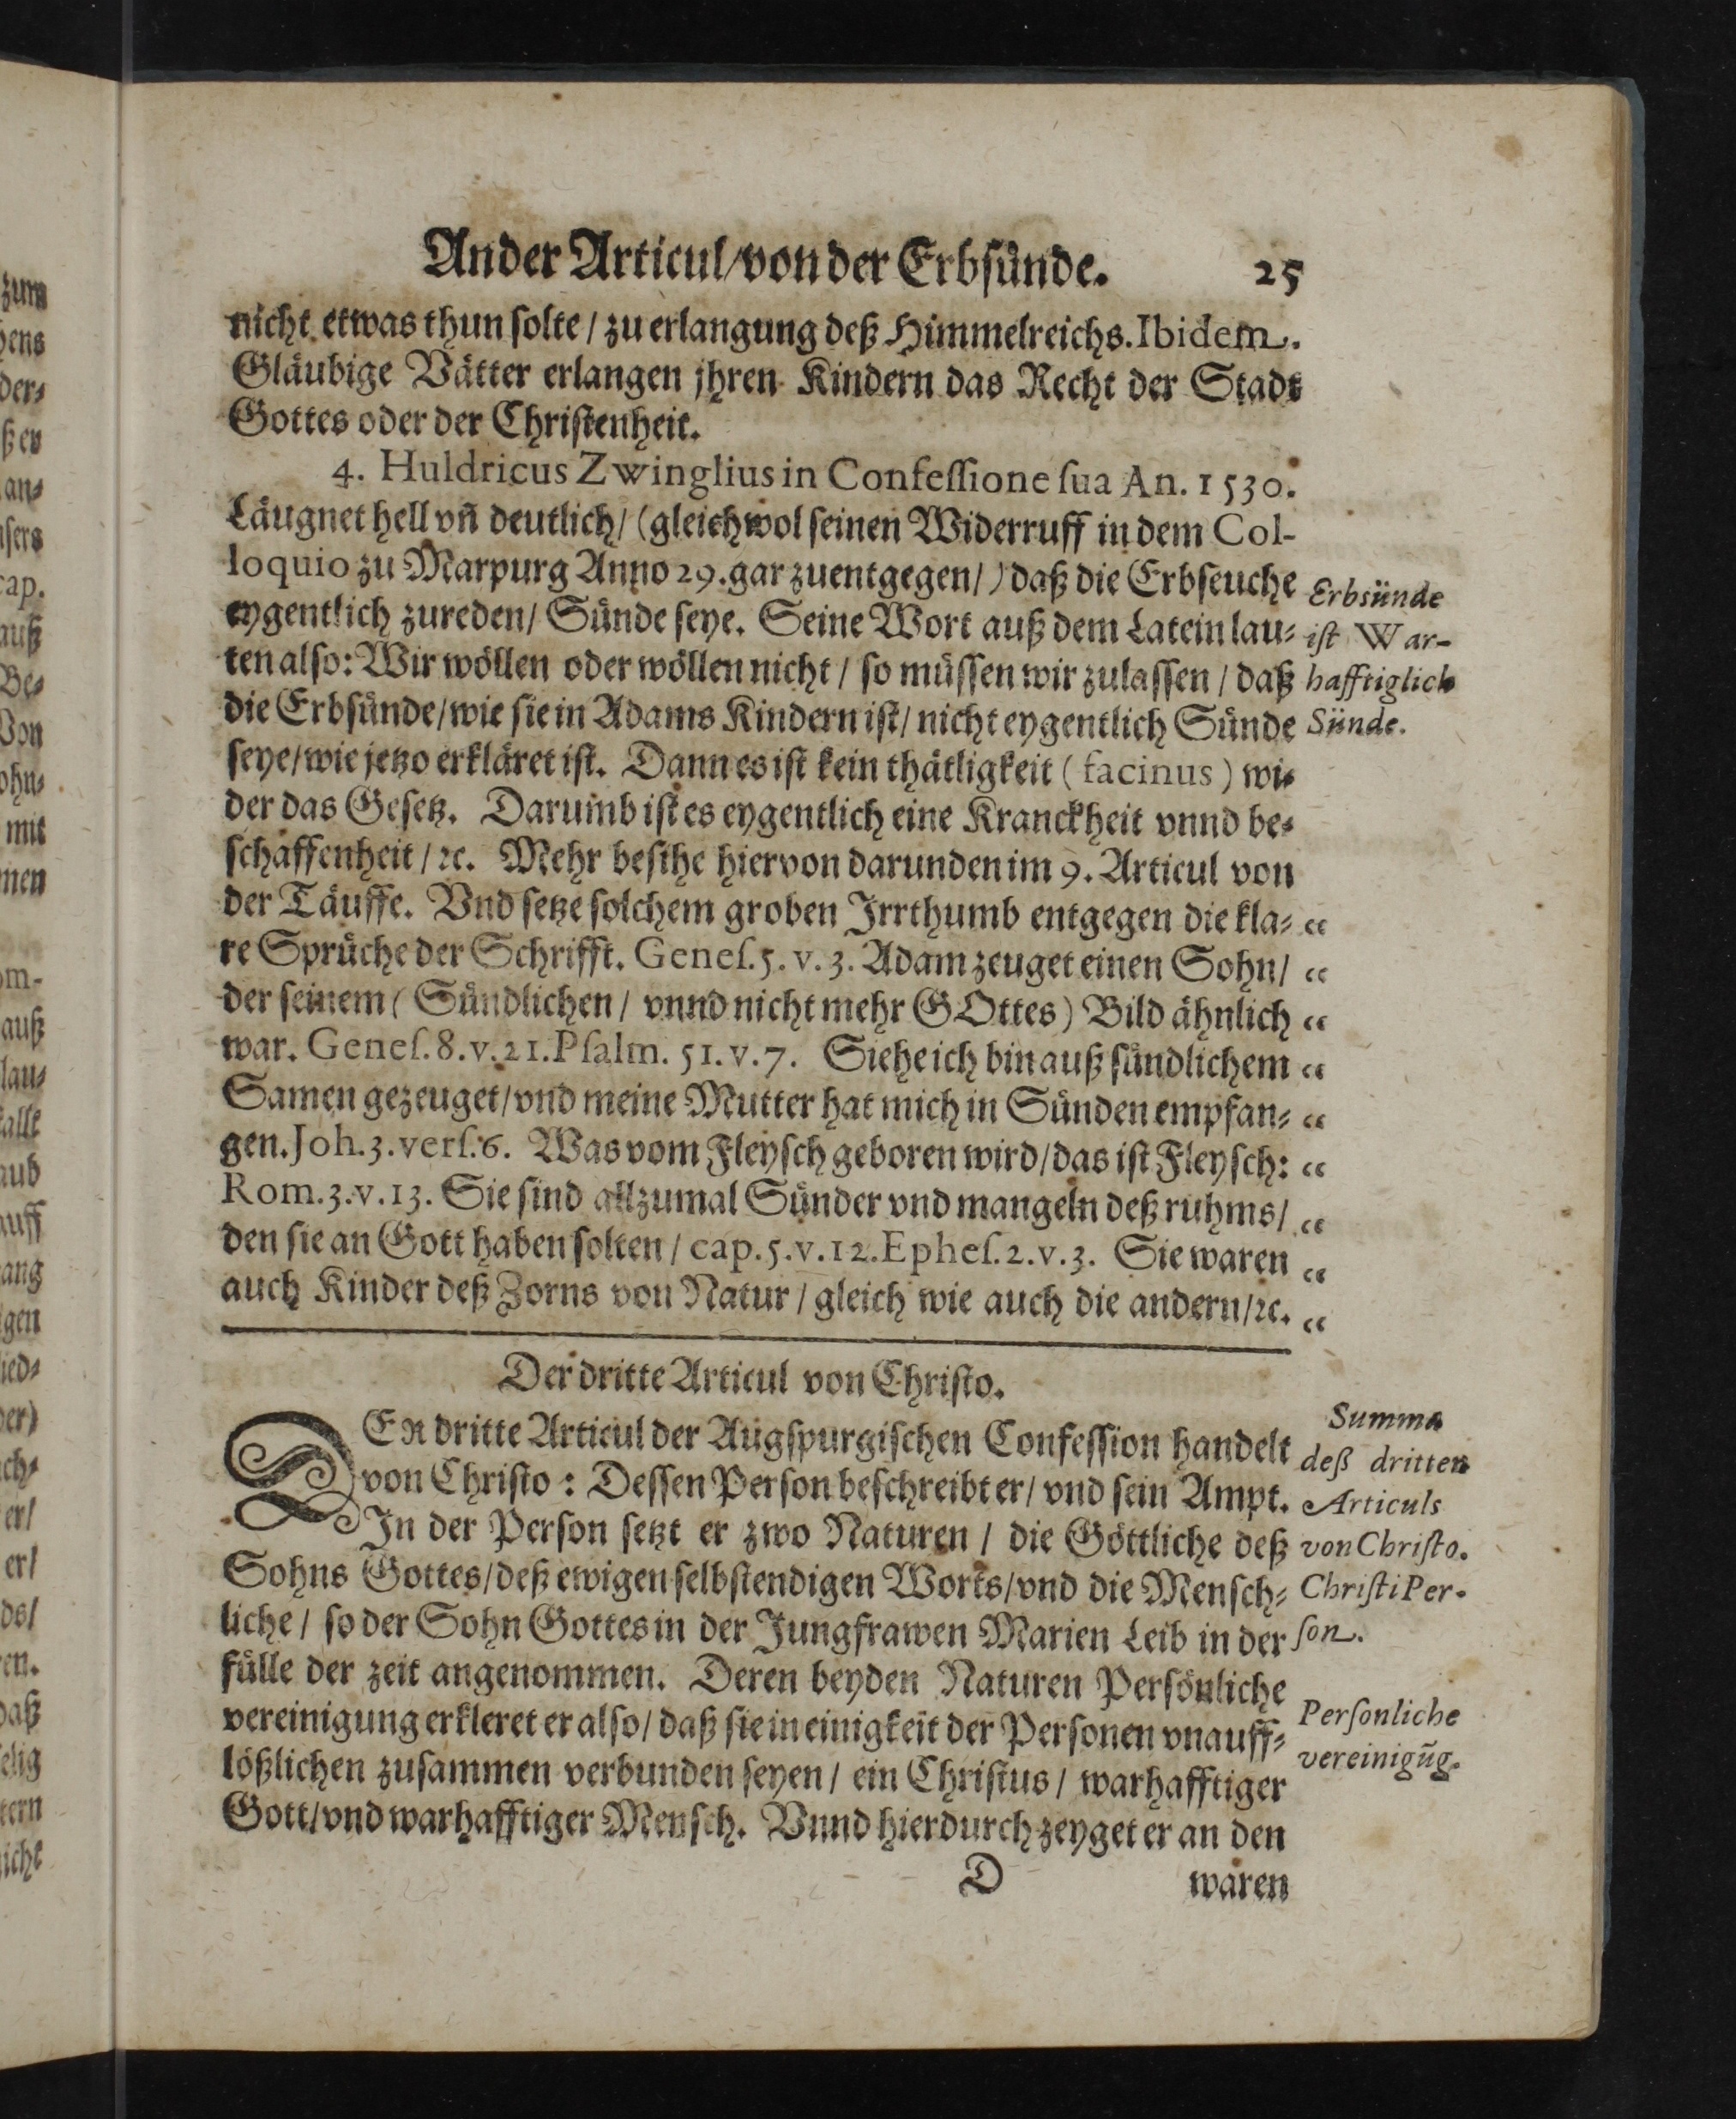 Ander Articul/von der Erbsünde. 25
nicht etwas thun solte / zu erlangung deß Himmelreichs. Ibidem.
Gläubige Vätter erlangen jhren Kindern das Recht der Stadt
Gottes oder der Christenheit.
4. Huldricus Zwinglius in Confeſſione ſua An. 1530.
Läugnet hell vñ deutlich/ (gleichwol seinen Widerruff in dem Col-
loquio zu Marpurg Anno 29. gar zuentgegen/) daß die Erbseuche
eygentlich zureden/ Sünde seye. Seine Wort auß dem Latein lau-
ten also: Wir wöllen oder wöllen nicht / so müssen wir zulassen / daß
die Erbsünde/wie sie in Adams Kindern ist/ nicht eygentlich Sünde
seye/wie jetzo erkläret ist. Dann es ist kein thätligkeit (facinus) wi-
der das Gesetz. Darumb ist es eygentlich eine Kranckheit vnnd be-
schaffenheit / ꝛc. Mehr besihe hiervon darunden im 9. Articul von
der Täuffe. Vnd setze solchem groben Irrthumb entgegen die kla- “
re Sprüche der Schrifft. Geneſ. 5. v. 3. Adam zeuget einen Sohn/ “
der seinem (Sündlichen / vnnd nicht mehr GOttes) Bild ähnlich “
war. Geneſ. 8. v. 21. Pſalm. 51. v. 7. Siehe ich bin auß sündlichem “
Samen gezeuget/vnd meine Mutter hat mich in Sünden empfan- “
gen. Joh. 3. verſ. 6. Was vom Fleysch geboren wird/das ist Fleysch: “
Rom. 3. v. 13. Sie sind allzumal Sünder vnd mangeln deß ruhms/ “
den sie an Gott haben solten / cap. 5. v. 12. Epheſ. 2. v. 3. Sie waren “
auch Kinder deß Zorns von Natur / gleich wie auch die andern/ꝛc. “
Erbsünde
iſt War-
hafftiglich
Sünde.
Der dritte Articul von Christo.
DER dritte Articul der Augspurgischen Confession handelt
von Christo: Dessen Person beschreibt er/ vnd sein Ampt.
In der Person setzt er zwo Naturen / die Göttliche deß
Sohns Gottes/deß ewigen selbstendigen Worts/vnd die Mensch-
liche / so der Sohn Gottes in der Jungfrawen Marien Leib in der
fülle der zeit angenommen. Deren beyden Naturen Persönliche
vereinigung erkleret er also/ daß sie in einigkeit der Personen vnauff-
lößlichen zusammen verbunden seyen / ein Christus / warhafftiger
Gott/vnd warhafftiger Mensch. Vnnd hierdurch zeyget er an den
Summa
deß dritten
Articuls
von Chriſto.
Chriſti Per-
ſon.
Perſonliche
vereinigūg.
D waren
zum
hens
der-
ß er
an-
nsers
cap.
auß
Be-
Von
ohn-
mit
men
om-
auß
lau-
falle
aub
auff
gang
gen
lied-
der)
ach-
er/
er/
ds/
en.
daß
selig
tern
nicht